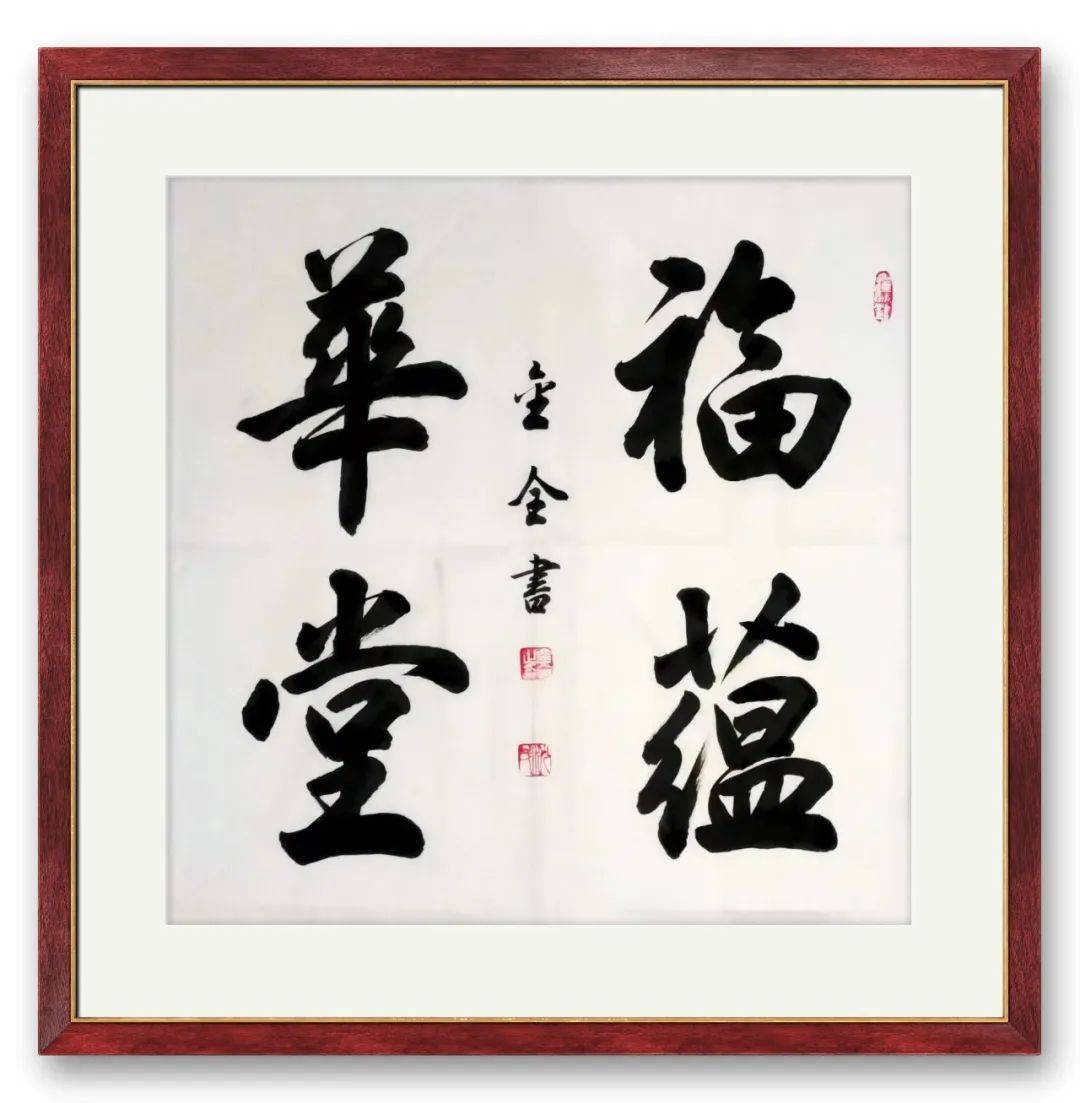 福蕴
華堂
金全書